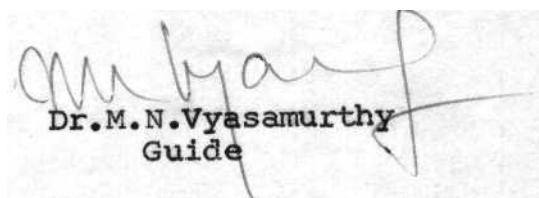 Dr.M.N.Vyasamurthy
Guide